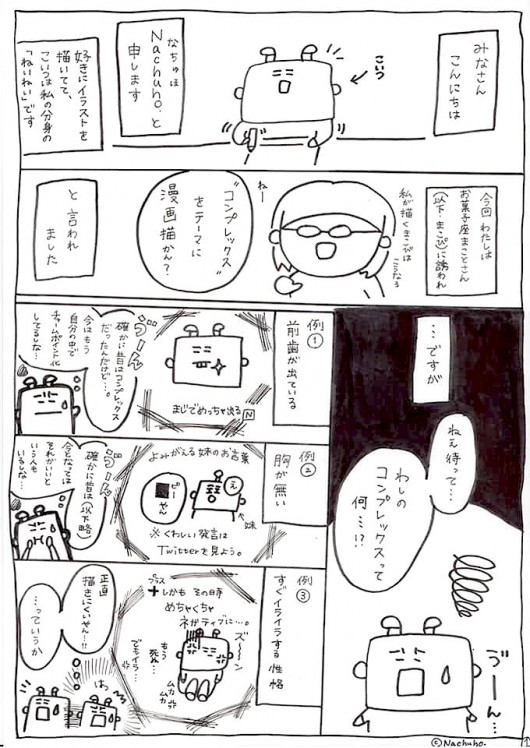 みなさん
こんにちは
こいつ
なちゅほ
Nachuho.と
申します
好きにイラストを
描いてて、
こいつは私の分身の
「ねいねい」です
今回わたしは
お菓子座まことさん
(以下、まこぴ)に誘われ
私が描くまこぴは
こうなる
ねー
"コンプレックス"
をテーマに
漫画描かん?
と言われ
ました
…ですが
ねぇ待って…
わしの
コンプレックスって
何…!?
ゔーん…
例①
前歯が出ている
まじでめっちゃ出る
N
ゔーん
確かに昔はコンプレックス
だったんだけど…。
今はもう
自分の中で
チャームポイント化
してるしな…
例②
胸が無い
よみがえる妹のお言葉
ピー
や
え
妹
※くわしい発言は
Twitterを見よう。
ゔーん
確かに昔は(以下略)
今となっては
それがいいと
いう人も
いるしな…
例③
すぐイライラする性格
プラス
+しかもその時
めちゃくちゃ
ネガティブに…。
ズーン
もう
死…
でもイラ…
ムカ
ムカ
正直
描きにくいぜん…!!
…っていうか
はっ
©Nachuho.